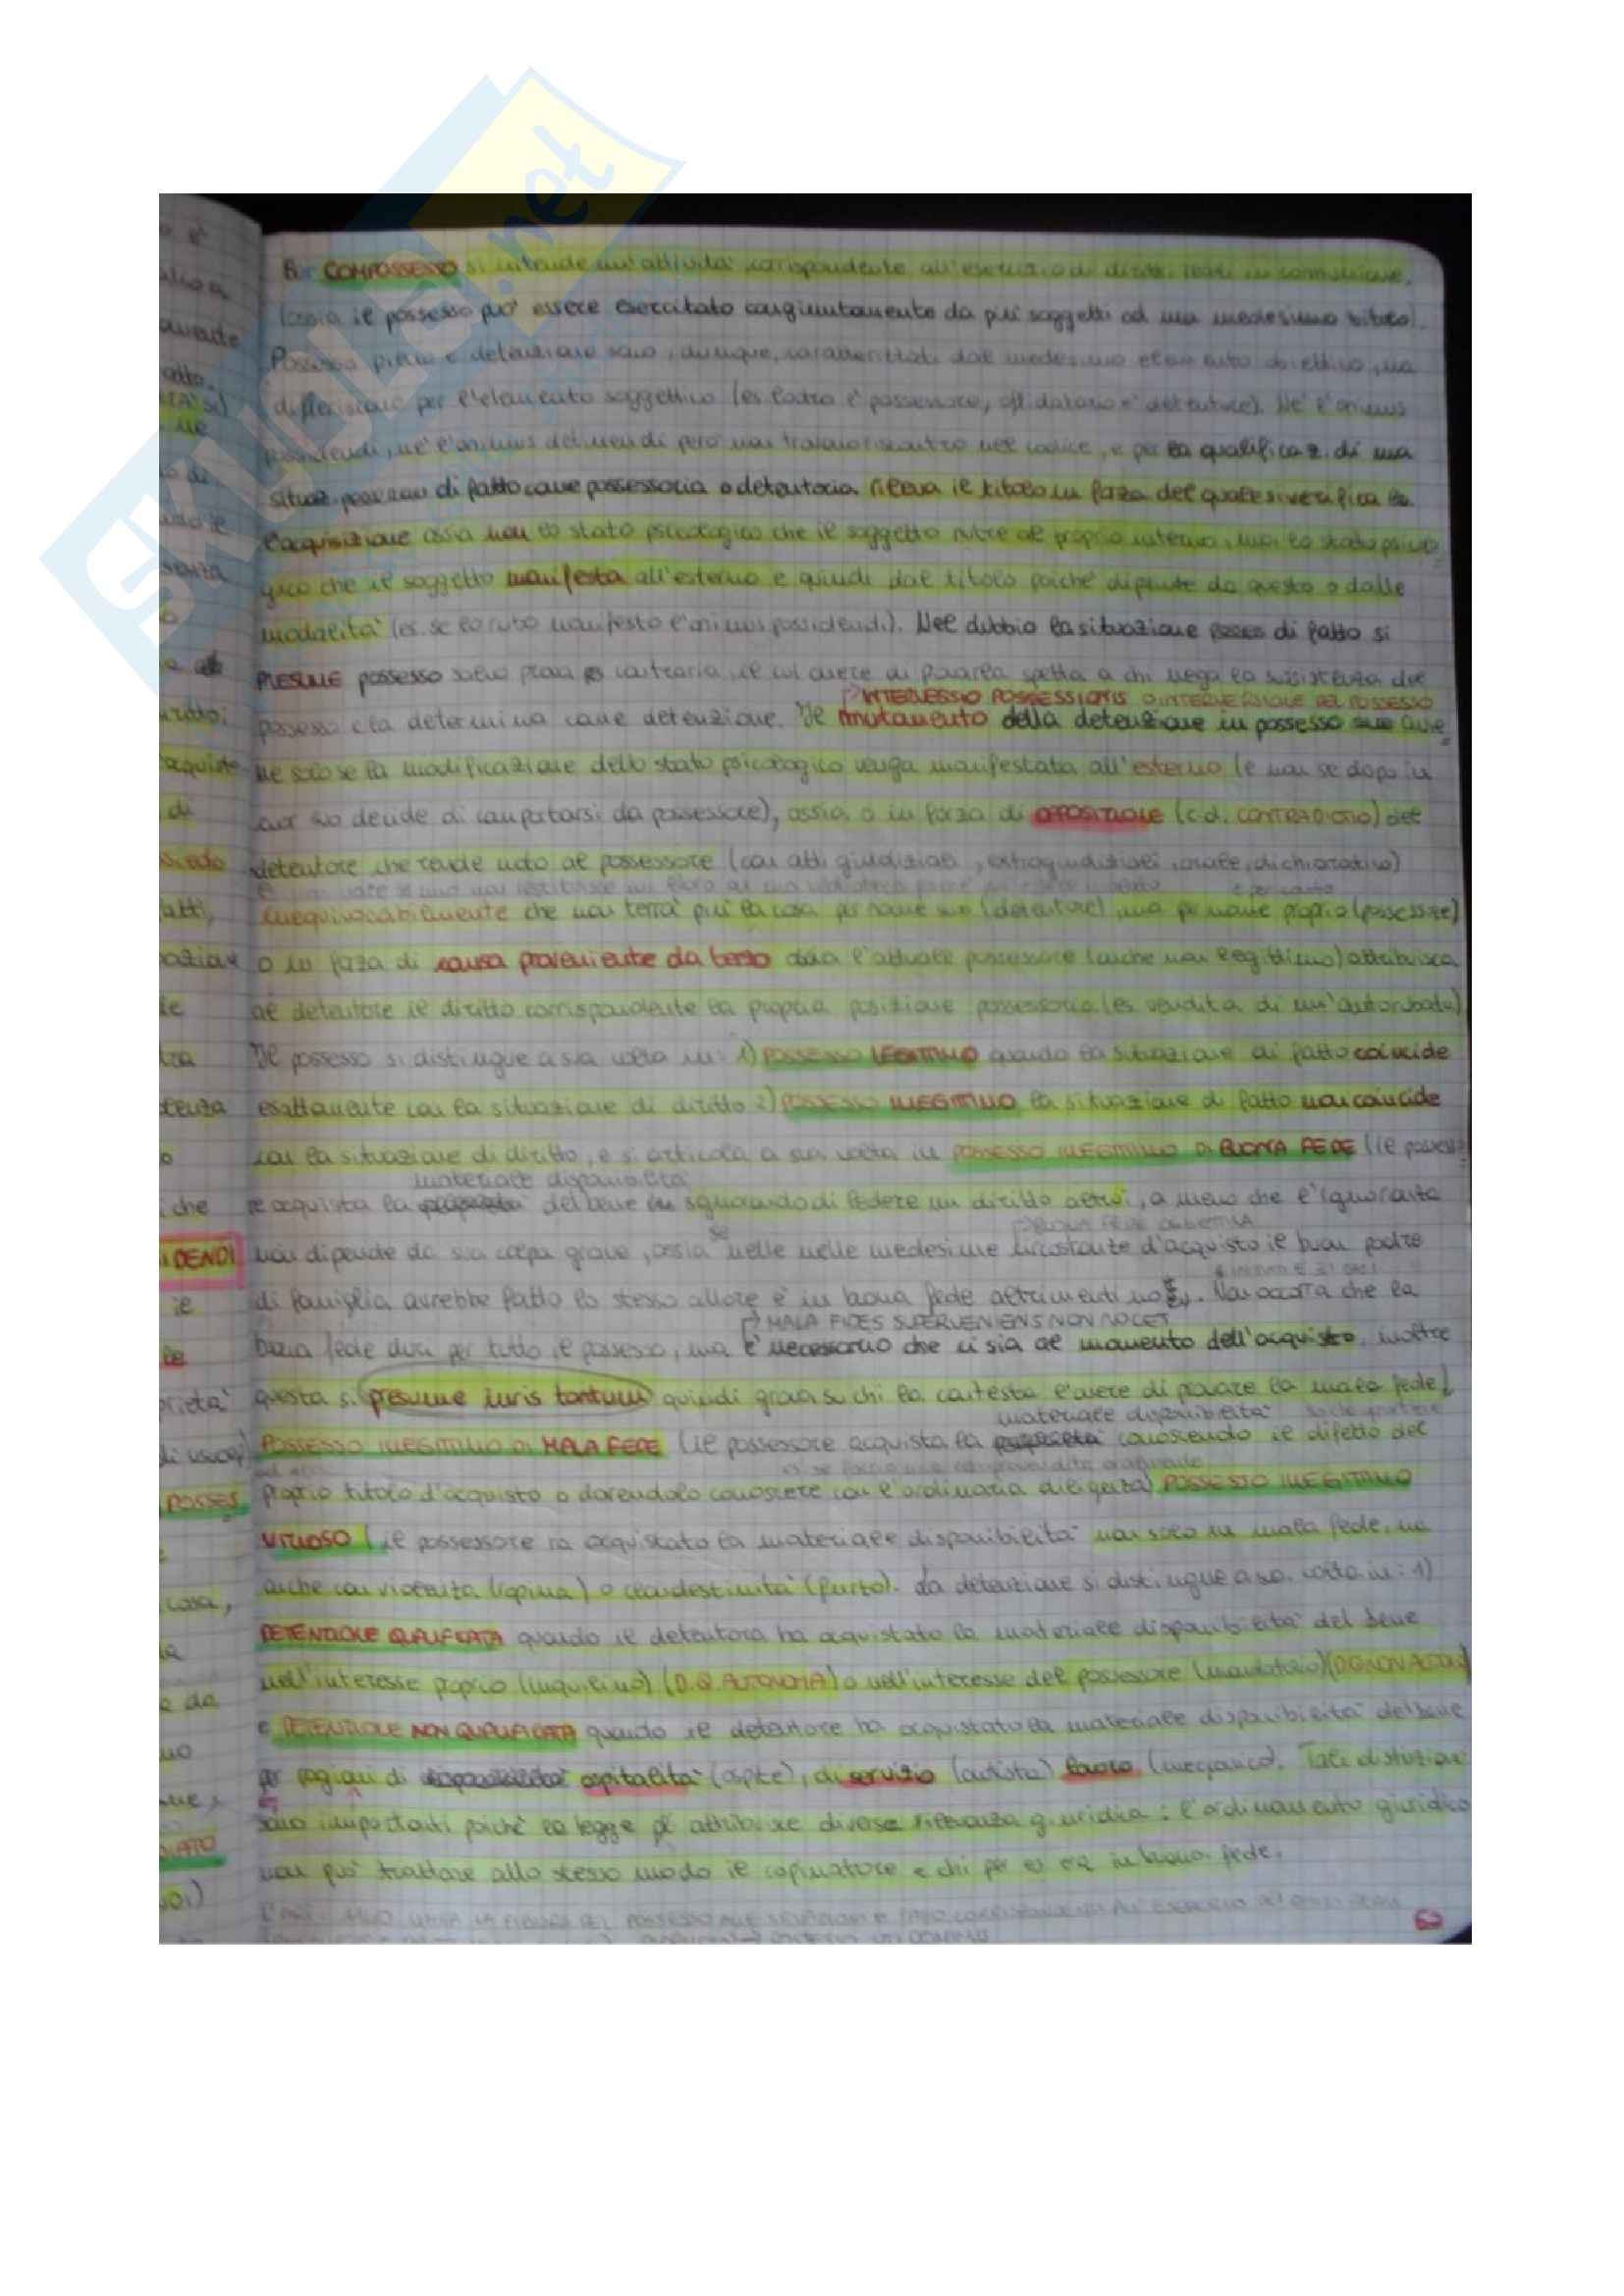 SKUOLA.net
Per COMPOSSESSO si intende un'attività corrispondente all'esercizio di diritti reali in comunione,
(ossia il possesso può essere esercitato congiuntamente da più soggetti ad un medesimo titolo).
Possesso pieno e detenzione sono, dunque, caratterizzati dal medesimo elemento obiettivo, ma
differiscono per l'elemento soggettivo (es ladro è possessore, affidatario è detentore). Né l'animus
possidendi, né l'animus detinendi però non trovano riscontro nel codice, e per la qualificaz. di una
situaz. di fatto come possessoria o detentoria rileva il titolo in forza del quale si verifica la
l'acquisizione ossia non lo stato psicologico che il soggetto nutre al proprio interno, ma lo stato psico
gico che il soggetto manifesta all'esterno e quindi dal titolo poiché dipende da questo o dalle
modalità (es. se la rubo manifesto l'animus possidendi). Nel dubbio la situazione di fatto si
PRESUME possesso salvo prova contraria, il cui onere di provarla spetta a chi nega la sussistenza del
INTERVERSIO POSSESSIONIS O INTERVERSIONE DEL POSSESSO
possesso e la determina come detenzione. Il mutamento della detenzione in possesso avvie
ne solo se la modificazione dello stato psicologico venga manifestata all'esterno (e non se dopo in
cuor suo decide di comportarsi da possessore), ossia o in forza di OPPOSIZIONE (c.d. CONTRADICTIO) del
detentore che rende noto al possessore (con atti giudiziari, extragiudiziari, orale, dichiarativo)
inequivocabilmente che non terrà più la cosa per nome suo (detentore), ma per nome proprio (possessore)
o in forza di causa proveniente da terzo ossia l'attuale possessore (anche non legittimo) attribuisca
al detentore il diritto corrispondente la propria posizione possessoria (es vendita di un'auto rubata)
Il possesso si distingue a sua volta in: 1) POSSESSO LEGITTIMO quando la situazione di fatto coincide
esattamente con la situazione di diritto 2) POSSESSO ILLEGITTIMO la situazione di fatto non coincide
con la situazione di diritto, e si articola a sua volta in POSSESSO ILLEGITTIMO DI BUONA FEDE (il possesso
materiale disponibilità
re acquista la del bene ignorando di ledere un diritto altrui, a meno che l'ignoranza
BUONA FEDE OBIETTIVA
non dipende da sua colpa grave, ossia se nelle nelle medesime circostanze d'acquisto il buon padre
di famiglia avrebbe fatto lo stesso allora è in buona fede altrimenti no). Non occorre che la
MALA FIDES SUPERVENIENS NON NOCET
buona fede duri per tutto il possesso, ma è necessario che ci sia al momento dell'acquisto, inoltre
questa si presume iuris tantum quindi grava su chi la contesta l'onere di provare la mala fede)
materiale disponibilità
POSSESSO ILLEGITTIMO DI MALA FEDE (il possessore acquista la conoscendo il difetto del
proprio titolo d'acquisto o dovendolo conoscere con l'ordinaria diligenza) POSSESSO ILLEGITTIMO
VITIOSO (il possessore ha acquistato la materiale disponibilità non solo in mala fede, ma
anche con violenza (rapina) o clandestinità (furto). La detenzione si distingue a sua volta in: 1)
DETENZIONE QUALIFICATA quando il detentore ha acquistato la materiale disponibilità del bene
nell'interesse proprio (inquilino) (D.Q. AUTONOMA) o nell'interesse del possessore (mandatario)
e DETENZIONE NON QUALIFICATA quando il detentore ha acquistato la materiale disponibilità del bene
per ragioni di ospitalità (ospite), di servizio (autista) lavoro (meccanico). Tali distinzioni
sono importanti poiché la legge attribuisce diversa rilevanza giuridica: l'ordinamento giuridico
non può trattare allo stesso modo il rapinatore e chi per es era in buona fede.